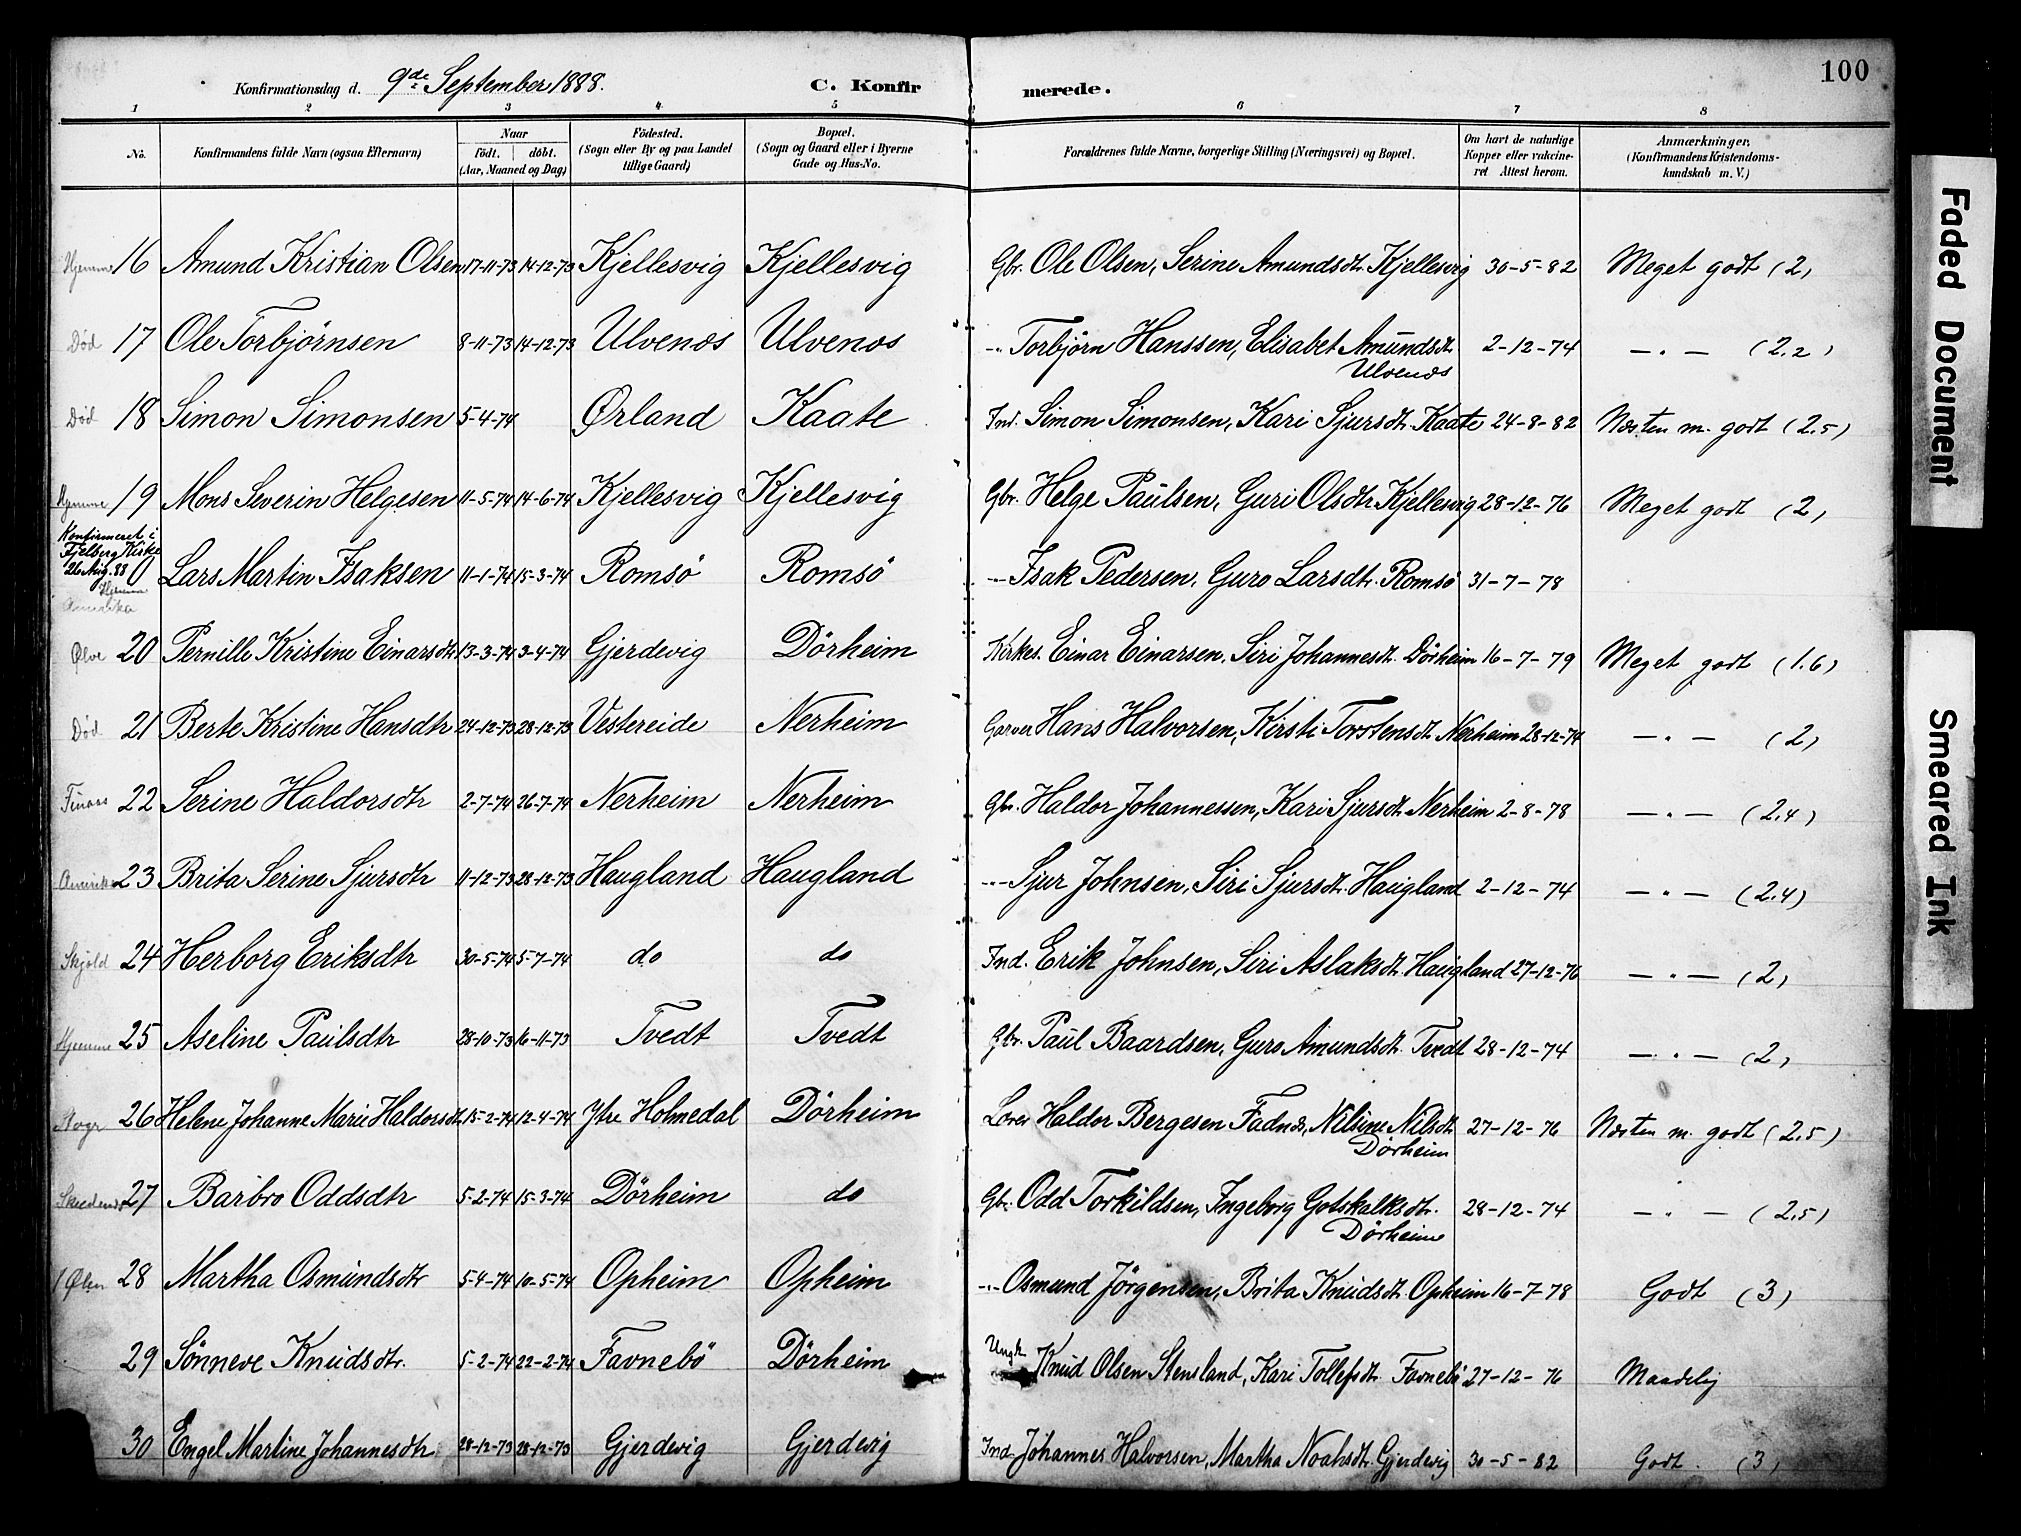 100
Konfirmationsdag d. 9de September 1888.
C. Konfirmerede.
1 2 3 4 5 6 7 8
No.
Konfirmandens fulde Navn (ogsaa Efternavn)
Naar
födt. döbt.
(Aar, Maaned og Dag)
Födested.
(Sogn eller By og paa Landet
tillige Gaard)
Bopæl.
(Sogn og Gaard eller i Byerne
Gade og Hus-No.
Forældrenes fulde Navne, borgerlige Stilling (Næringsvei) og Bopæl.
Om havt de naturlige
Kopper eller vakcine-
ret Attest herom.
Anmærkninger.
(Konfirmandens Kristendoms-
kundskab m. V.)
Hjemme 16 Amund Kristian Olsen 17-11-73 14-12-73 Kjellesvig Kjellesvig Gbr. Ole Olsen, Serine Amundsdtr. Kjellesvig 30-5-82 Meget godt (2)
Död 17 Ole Torbjörnsen 8-11-73 14-12-73 Ulvenæs Ulvenæs -"- Torbjörn Hanssen, Elisabet Amundsdtr. 2-12-74 — " — (2.2)
Ulvenæs
Död 18 Simon Simonsen 5-4-74 Ørland Kaate Ind. Simon Simonsen, Kari Sjursdtr. Kaate 24-8-82 Næsten m. godt (2.5)
Hjemme 19 Mons Severin Helgesen 11-5-74 14-6-74 Kjellesvig Kjellesvig Gbr. Helge Paulsen, Guri Olsdtr. Kjellesvig 28-12-76 Meget godt (2)
Konfirmeret i
Fjelberg Kirke
26 Aug. 88 0 Lars Martin Isaksen 11-1-74 15-3-74 Romsö Romsö -"- Isak Pedersen, Guro Larsdtr. Romsö 31-7-78
Hjemme
Amerika
Ølve 20 Pernille Kristine Einarsdtr 13-3-74 3-4-74 Gjerdevig Dörheim Kirkes. Einar Einarsen, Siri Johannesdtr. Dörheim 16-7-79 Meget godt (1.6)
Död 21 Berte Kristine Hansdtr 24-12-73 28-12-73 Vestereide Nerheim Garver Hans Halvorsen, Kirsti Torstensdtr. Nerheim 28-12-74 — " — (2)
22 Serine Haldorsdtr 2-7-74 26-7-74 Nerheim Nerheim Gbr. Haldor Johannessen, Kari Sjursdtr. Nerheim 2-8-78 — " — (2.4)
Amerika 23 Brita Serine Sjursdtr 11-12-73 28-12-73 Haugland Haugland -"- Sjur Johnsen, Siri Sjursdtr. Haugland 2-12-74 — " — (2.4)
Skjold 24 Herborg Eriksdtr 30-5-74 5-7-74 do do Ind. Erik Johnsen, Siri Aslaksdtr. Haugland 27-12-76 — " — (2)
Hjemme 25 Aseline Paulsdtr 28-10-73 16-11-73 Tvedt Tvedt Gbr. Paul Baardsen, Guro Amundsdtr. Tvedt 28-12-74 — " — (2)
26 Helene Johanne Marie Haldorsdtr. 15-2-74 12-4-74 Ytre Holmedal Dörheim Lærer Haldor Bergesen Fadnæs, Nilsine Nilsdtr. 27-12-76 Næsten m. godt (2.5)
Dörheim
27 Barbro Oddsdtr 5-2-74 15-3-74 Dörheim do Gbr. Odd Torkildsen, Ingeborg Gotskalksdtr. 28-12-74 — " — (2.5)
Dörheim
Ølen 28 Martha Osmundsdtr 5-4-74 10-5-74 Opheim Opheim -"- Osmund Jörgensen, Brita Knudsdtr. Opheim 16-7-78 Godt (3)
29 Sönneve Knudsdtr. 5-2-74 22-2-74 Favnebö Dörheim Ungk. Knud Olsen Stensland, Kari Tollefsdtr. Favnebö 27-12-76 Maadelig
30 Engel Martine Johannesdtr. 28-12-73 28-12-73 Gjerdevig Gjerdevig Ind. Johannes Halvorsen, Martha Noahsdtr. Gjerdevig 30-5-82 Godt. (3)
Faded Document
Smeared Ink